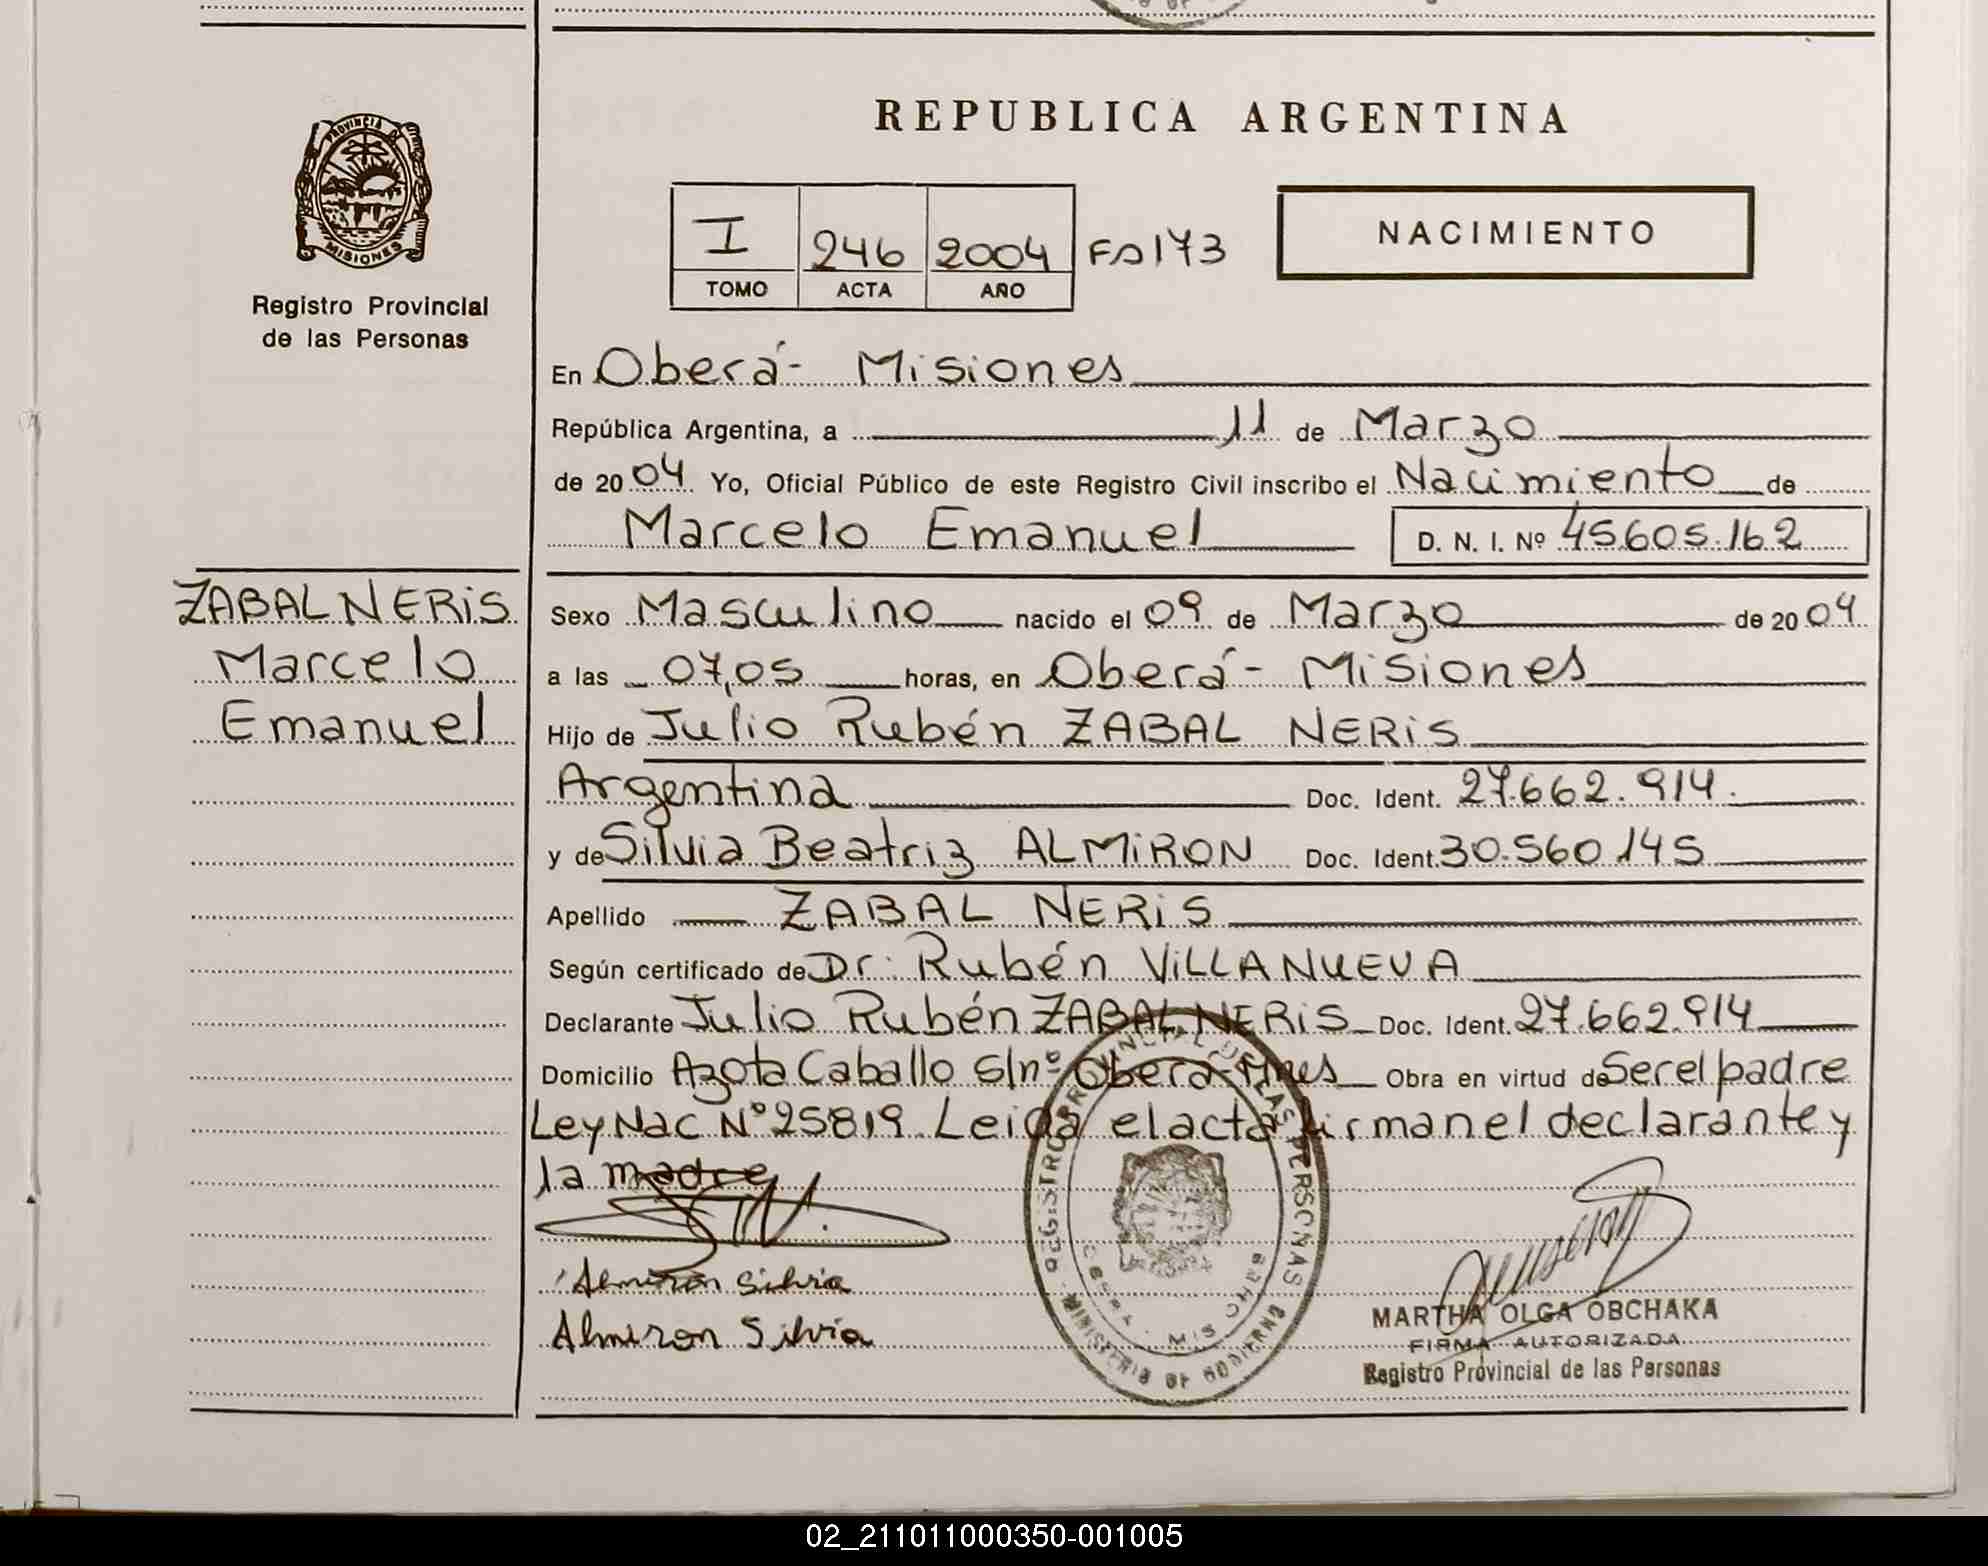 REPUBLICA ARGENTINA
PROVINCIA DE MISIONES
Registro Provincial
de las Personas
I 246 2004 Fo 173
TOMO ACTA AÑO
NACIMIENTO
En Oberá - Misiones
República Argentina, a 11 de Marzo
de 2004 Yo, Oficial Público de este Registro Civil inscribo el Nacimiento de
Marcelo Emanuel D. N. I. Nº 45.605.162
ZABAL NERIS
Marcelo
Emanuel
Sexo Masculino nacido el 09 de Marzo de 2004
a las 07,05 horas, en Oberá - Misiones
Hijo de Julio Rubén ZABAL NERIS
Argentina Doc. Ident. 27.662.914.
y de Silvia Beatriz ALMIRON Doc. Ident. 30.560.145
Apellido ZABAL NERIS
Según certificado de Dr. Rubén VILLANUEVA
Declarante Julio Rubén ZABAL NERIS Doc. Ident. 27.662.914
Domicilio Azota Caballo S/nº Oberá - Mnes Obra en virtud de Ser el padre
Ley Nac Nº 25819. Leida el acta firman el declarante y
la madre
Almiron Silvia
Almiron Silvia
REGISTRO PROVINCIAL DE LAS PERSONAS
OBERA - MISIONES
MINISTERIO DE GOBIERNO
MARTHA OLGA OBCHAKA
FIRMA AUTORIZADA
Registro Provincial de las Personas
02_211011000350-001005